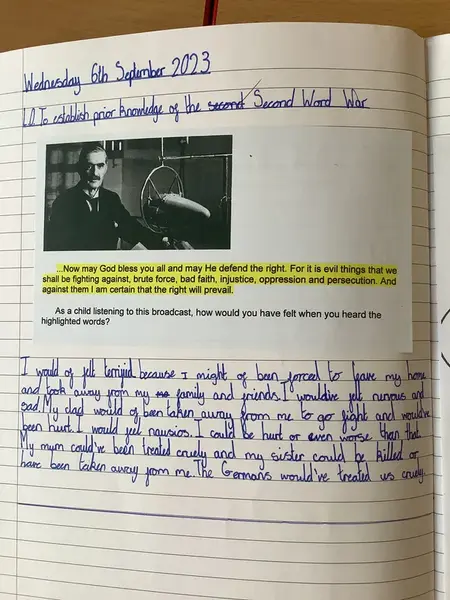 Wednesday 6th September 2023
L.O To establish prior knowledge of the second Second Word War
...Now may God bless you all and may He defend the right. For it is evil things that we
shall be fighting against, brute force, bad faith, injustice, oppression and persecution. And
against them I am certain that the right will prevail.
As a child listening to this broadcast, how would you have felt when you heard the
highlighted words?
I would of felt terrified because I might of been forced to leave my home
and took away from my family and friends. I would've felt nervous and
sad. My dad would of been taken away from me to go fight and would've
been hurt. I would feel nausios. I could be hurt or even worse than that.
My mum could've been treated cruely and my sister could be killed or
have been taken away from me. The Germans would've treated us cruely.